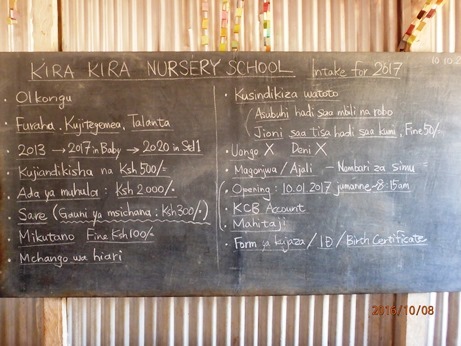 KIRA KIRA NURSERY SCHOOL Intake for 2017
10.10.2
• Olkongu
• Furaha, Kujitegemea, Talanta
• 2013 → 2017 in Baby → 2020 in Std 1
• Kujiandikisha na Ksh 500/=
• Ada ya muhula : Ksh 2,000/=
• Sare (Gauni ya msichana : Ksh 300/=)
• Mikutano Fine Ksh 100/=
• Mchango wa hiari
• Kusindikiza watoto
Asubuhi hadi saa mbili na robo
Jioni saa tisa hadi saa kumi, Fine 50/=
• Uongo X Deni X
• Magonjwa / Ajali – Nambari za simu
• Opening : 10.01.2017 jumanne 8:15am
• KCB Account
• Mahitaji
• Form ya kujaza / ID / Birth Certificate
2016/10/08